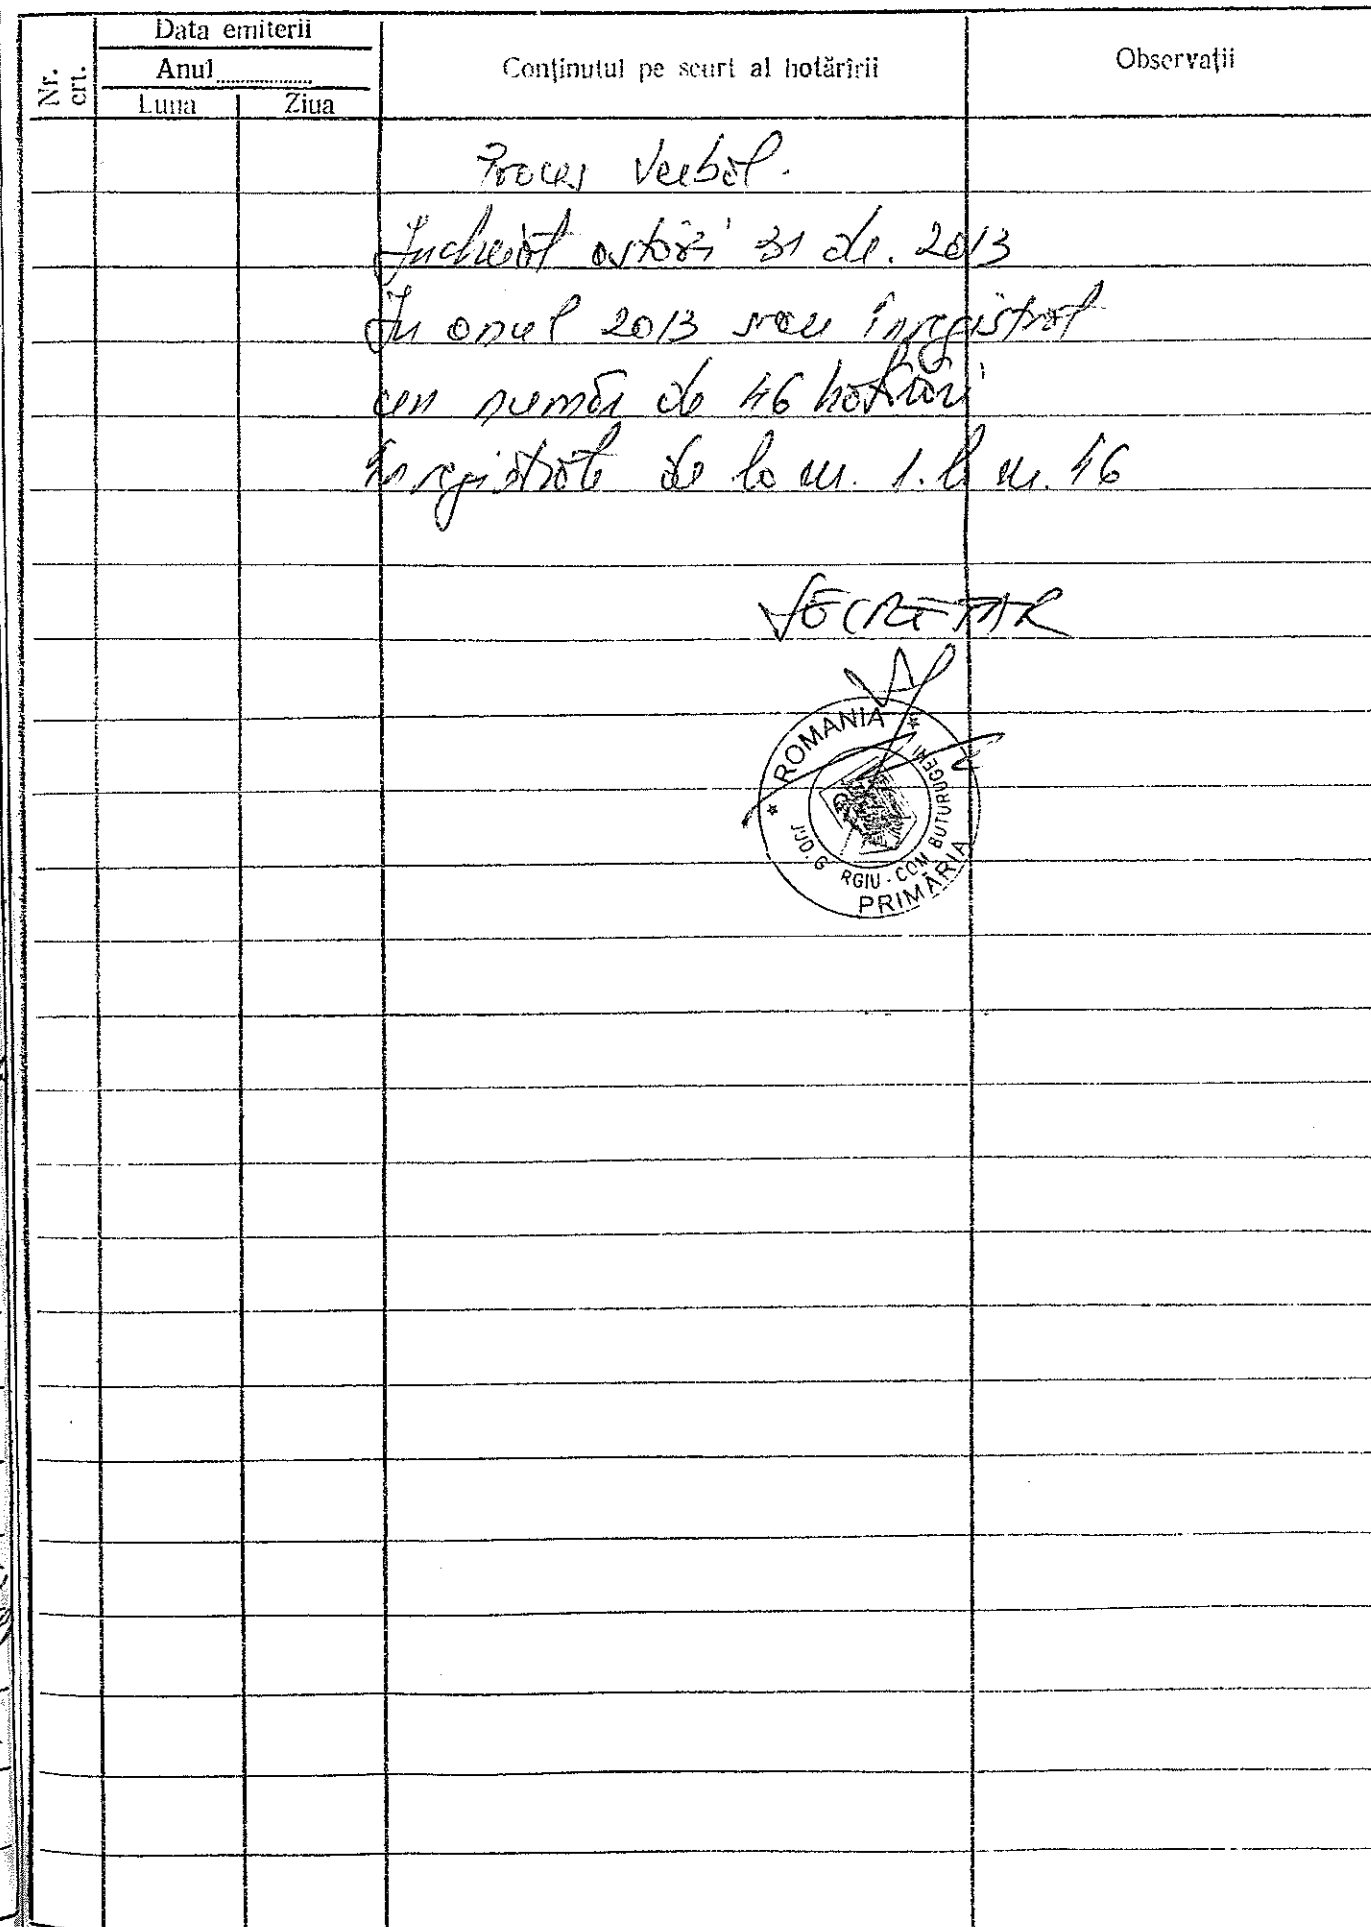 Nr. crt.
Data emiterii
Anul ............
Luna Ziua
Conținutul pe scurt al hotărîrii
Observații
Proces Verbal.
Încheiat astăzi 31 de. 2013
În anul 2013 s-au înregistrat
un număr de 46 hotărâri
înregistrate de la nr. 1. la nr. 46
SECRETAR
* ROMANIA *
JUD. G RGIU - COM BUTURUGENI
PRIMĂRIA